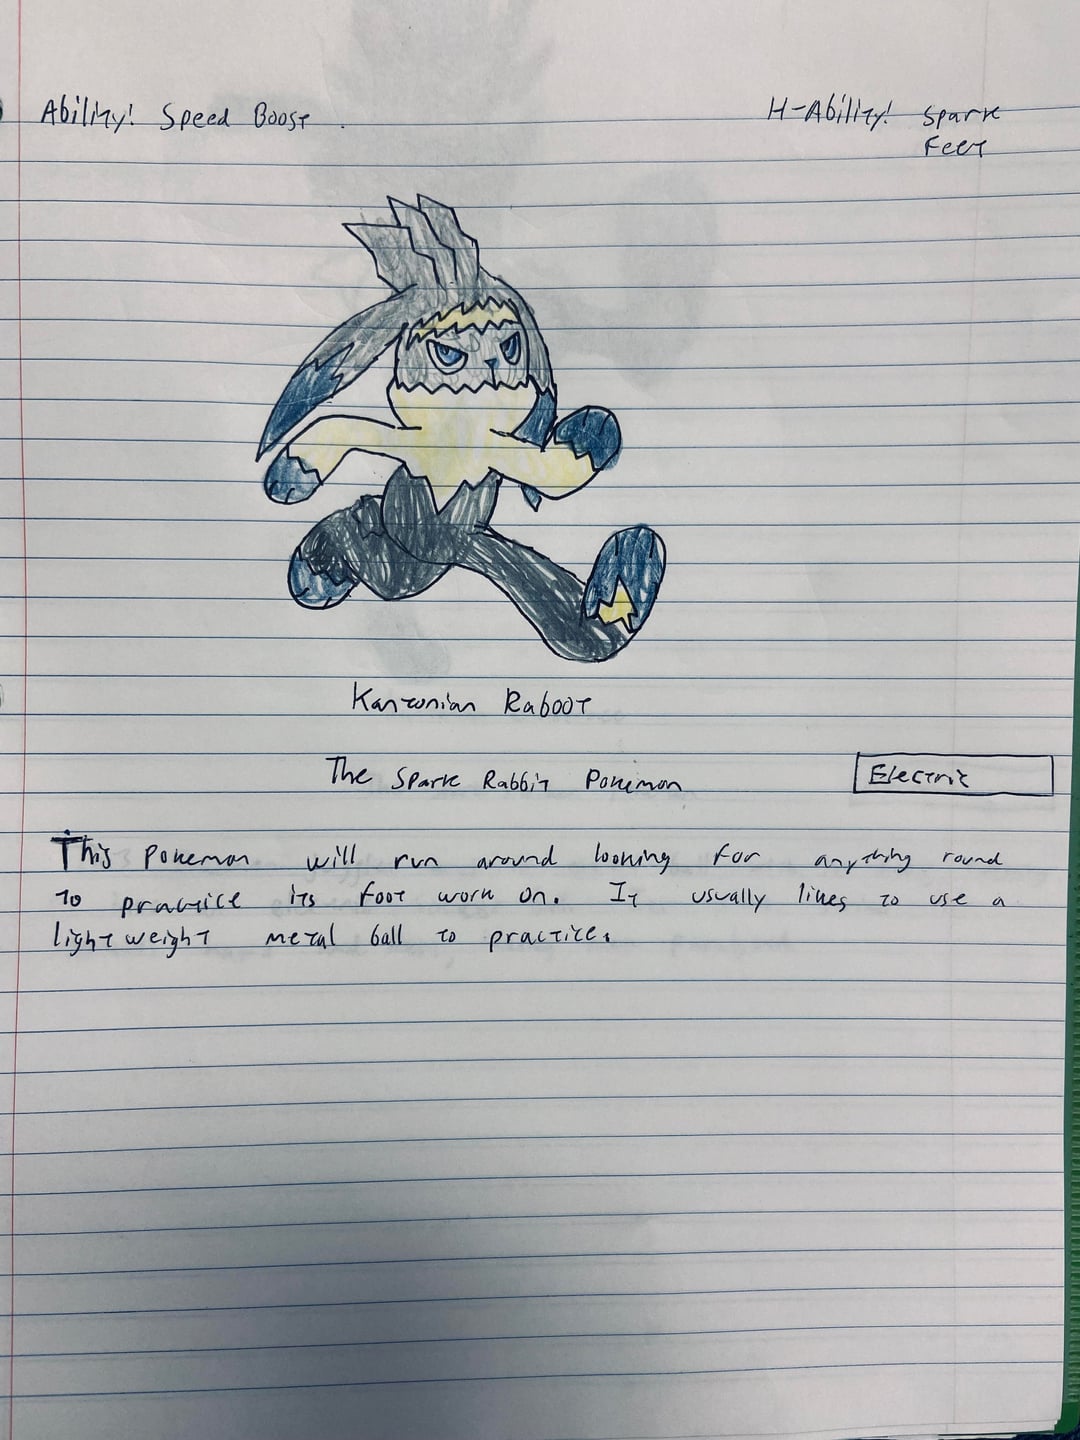 Ability! Speed Boost
H-Ability! Spark
Feet
Kantonian Raboot
The Spark Rabbit Pokemon
Electric
This Pokemon will run around looking for anything round
to practice its foot work on. It usually likes to use a
light weight metal ball to practice.